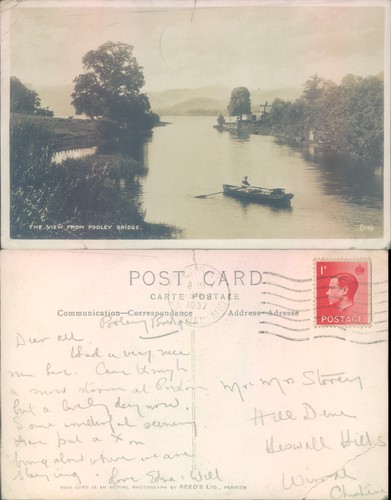 THE VIEW FROM POOLEY BRIDGE.
POST CARD
CARTE POSTALE
Communication—Correspondance
Address—Adresse
1937
1D
POSTAGE
Pooley Bridge
Dear all.
Had a very nice
run here. Came through
a snow storm at
but a lovely day now.
Some wonderful scenery
Have put a X on
bung alow where we are
staying. love Edna & Will
Mr & Mrs Storey
Hill Dene
Heswall Hills
Wirral
Cheshire
THIS CARD IS AN ACTUAL PHOTOGRAPH BY REED'S LTD., PENRITH